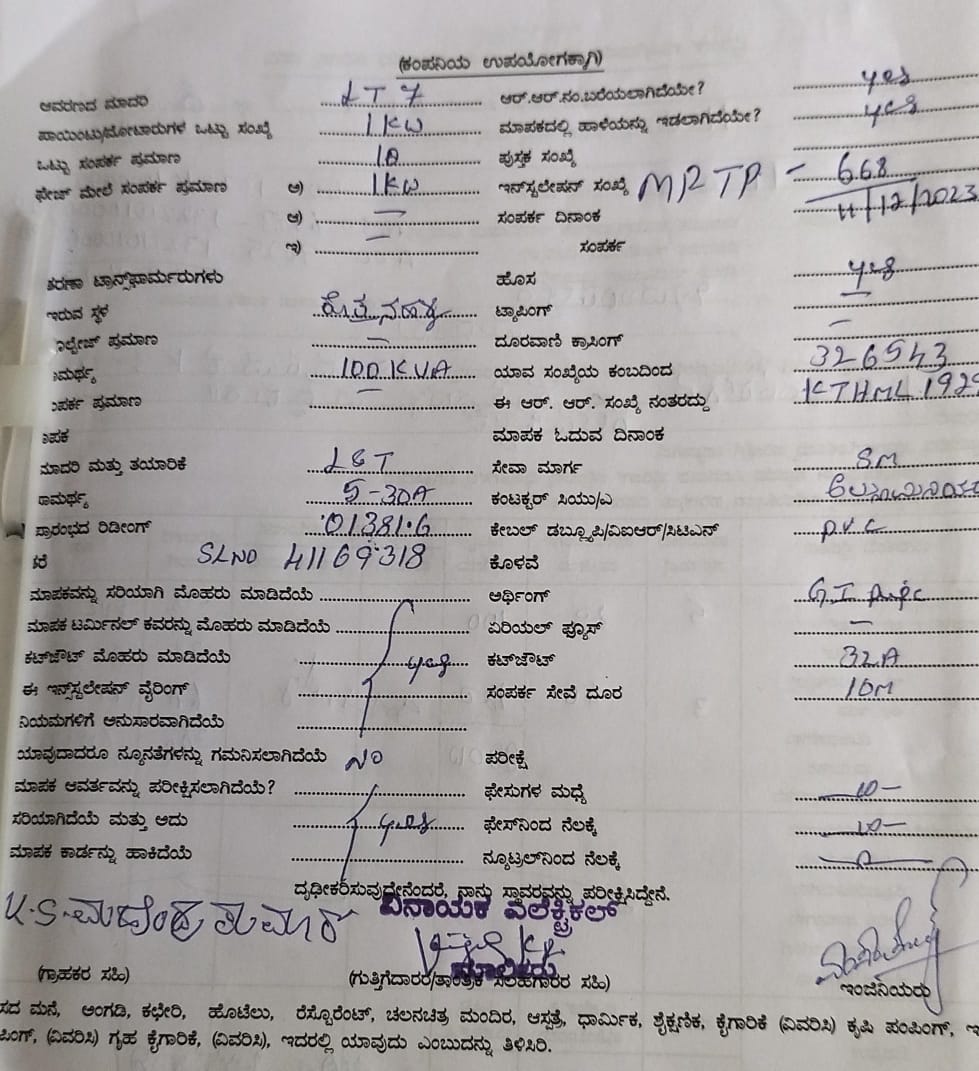 (ಕಂಪನಿಯ ಉಪಯೋಗಕ್ಕಾಗಿ)
ಆವರಣದ ಮಾದರಿ LT 7 ಆರ್.ಆರ್.ನಂ.ಬರೆಯಲಾಗಿದೆಯೇ? yes
ಪಾಯಿಂಟು/ಮೋಟಾರುಗಳ ಒಟ್ಟು ಸಂಖ್ಯೆ 1KW ಮಾಪಕದಲ್ಲಿ ಹಾಳೆಯನ್ನು ಇಡಲಾಗಿದೆಯೇ? yes
ಒಟ್ಟು ಸಂಪರ್ಕ ಪ್ರಮಾಣ ಪುಸ್ತಕ ಸಂಖ್ಯೆ
ಫೇಜ್ ಮೇಲೆ ಸಂಪರ್ಕ ಪ್ರಮಾಣ ಅ) 1KW ಇನ್‌ಸ್ಟಲೇಷನ್ ಸಂಖ್ಯೆ MRTP - 668
ಆ) — ಸಂಪರ್ಕ ದಿನಾಂಕ 11/12/2023
ಇ) — ಸಂಪರ್ಕ
ತರಣಾ ಟ್ರಾನ್ಸ್‌ಫಾರ್ಮರುಗಳು ಹೊಸ yes
ಇರುವ ಸ್ಥಳ ಟ್ಯಾಪಿಂಗ್ —
ೋಲ್ಟೇಜ್ ಪ್ರಮಾಣ — ದೂರವಾಣಿ ಕ್ರಾಸಿಂಗ್ —
ಾಮರ್ಥ್ಯ 100 KVA ಯಾವ ಸಂಖ್ಯೆಯ ಕಂಬದಿಂದ 326543
ಂಪರ್ಕ ಪ್ರಮಾಣ — ಈ ಆರ್. ಆರ್. ಸಂಖ್ಯೆ ನಂತರದ್ದು KTHML 192
ಾಪಕ ಮಾಪಕ ಓದುವ ದಿನಾಂಕ
ಮಾದರಿ ಮತ್ತು ತಯಾರಿಕೆ L&T ಸೇವಾ ಮಾರ್ಗ SM
ಸಾಮರ್ಥ್ಯ 5-30A ಕಂಟಕ್ಟರ್ ಸಿಯು/ಎ
ಪ್ರಾರಂಭದ ರಿಡೀಂಗ್ 01381.6 ಕೇಬಲ್ ಡಬ್ಲ್ಯೂಪಿ/ವಿಐಆರ್/ಸಿಟಿಎಸ್ P.V.C
ತರೆ SLNO 41169318 ಕೊಳವೆ
ಮಾಪಕವನ್ನು ಸರಿಯಾಗಿ ಮೊಹರು ಮಾಡಿದೆಯೆ ಅರ್ಥಿಂಗ್ G I pipe
ಮಾಪಕ ಟರ್ಮಿನಲ್ ಕವರನ್ನು ಮೊಹರು ಮಾಡಿದೆಯೆ ಏರಿಯಲ್ ಫ್ಯೂಸ್ —
ಕಟ್‌ಔಟ್ ಮೊಹರು ಮಾಡಿದೆಯೆ yes ಕಟ್‌ಔಟ್ 32A
ಈ ಇನ್ಸ್‌ಟಲೇಷನ್ ವೈರಿಂಗ್ ಸಂಪರ್ಕ ಸೇವೆ ದೂರ 10M
ನಿಯಮಗಳಿಗೆ ಅನುಸಾರವಾಗಿದೆಯೆ
ಯಾವುದಾದರೂ ನ್ಯೂನತೆಗಳನ್ನು ಗಮನಿಸಲಾಗಿದೆಯೆ NO ಪರೀಕ್ಷೆ
ಮಾಪಕ ಆವರ್ತವನ್ನು ಪರೀಕ್ಷಿಸಲಾಗಿದೆಯೆ? ಫೇಸುಗಳ ಮಧ್ಯೆ
ಸರಿಯಾಗಿದೆಯೆ ಮತ್ತು ಅದು yes ಫೇಸ್‌ನಿಂದ ನೆಲಕ್ಕೆ
ಮಾಪಕ ಕಾರ್ಡನ್ನು ಹಾಕಿದೆಯೆ ನ್ಯೂಟ್ರಲ್‌ನಿಂದ ನೆಲಕ್ಕೆ
ದೃಢೀಕರಿಸುವುದೇನೆಂದರೆ, ನಾನು ಸ್ಥಾವರವನ್ನು ಪರೀಕ್ಷಿಸಿದ್ದೇನೆ.
ವಿನಾಯಕ ಎಲೆಕ್ಟ್ರಿಕಲ್
ಮಾಲೀಕರು
(ಗ್ರಾಹಕರ ಸಹಿ) (ಗುತ್ತಿಗೆದಾರರ/ತಾಂತ್ರಿಕ ಸಲಹೆಗಾರರ ಸಹಿ) ಇಂಜಿನಿಯರು
ಸದ ಮನೆ, ಅಂಗಡಿ, ಕಛೇರಿ, ಹೊಟೆಲು, ರೆಸ್ಟೊರೆಂಟ್, ಚಲನಚಿತ್ರ ಮಂದಿರ, ಆಸ್ಪತ್ರೆ, ಧಾರ್ಮಿಕ, ಶೈಕ್ಷಣಿಕ, ಕೈಗಾರಿಕೆ (ವಿವರಿಸಿ) ಕೃಷಿ ಪಂಪಿಂಗ್,
ಪಿಂಗ್, (ವಿವರಿಸಿ) ಗೃಹ ಕೈಗಾರಿಕೆ, (ವಿವರಿಸಿ), ಇದರಲ್ಲಿ ಯಾವುದು ಎಂಬುದನ್ನು ತಿಳಿಸಿರಿ.